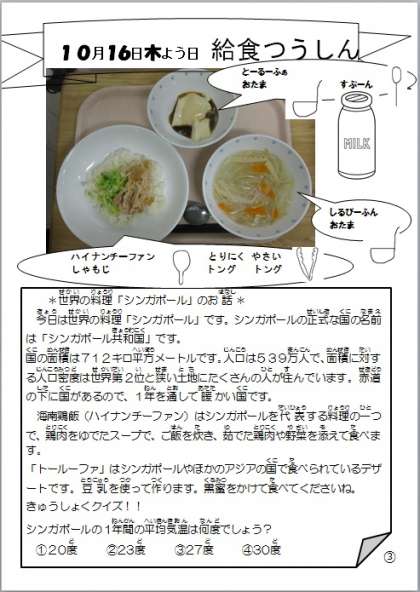 10月16日木よう日 給食つうしん
とーるーふぁ
おたま
すぷーん
MILK
しるびーふん
おたま
ハイナンチーファン
しゃもじ
とりにく
トング
やさい
トング
＊世界の料理「シンガポール」のお話＊
今日は世界の料理「シンガポール」です。シンガポールの正式な国の名前
は「シンガポール共和国」です。
国の面積は７１２キロ平方メートルです。人口は５３９万人で、面積に対す
る人口密度は世界第２位と狭い土地にたくさんの人が住んでいます。赤道
の下に国があるので、１年を通して暖かい国です。
海南鶏飯（ハイナンチーファン）はシンガポールを代表する料理の一つ
で、鶏肉をゆでたスープで、ご飯を炊き、茹でた鶏肉や野菜を添えて食べま
す。
「トールーファ」はシンガポールやほかのアジアの国で食べられているデザ
ートです。豆乳を使って作ります。黒蜜をかけて食べてくださいね。
きゅうしょくクイズ！！
シンガポールの１年間の平均気温は何度でしょう？
①２０度 ②２３度 ③２７度 ④３０度
③